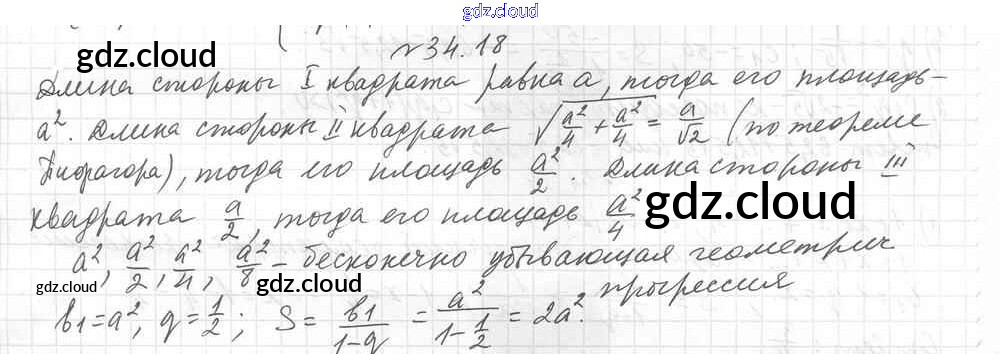 gdz.cloud
№34.18
gdz.cloud
Длина стороны I квадрата равна a, тогда его площадь –
a². Длина стороны II квадрата √(a²/4 + a²/4) = a/√2 (по теореме
Пифагора), тогда его площадь a²/2. Длина стороны III
квадрата a/2, тогда его площадь a²/4
gdz.cloud
a², a²/2, a²/4, a²/8 – бесконечно убывающая геометрич
gdz.cloud gdz.cloud
прогрессия
b₁=a², q=1/2; S= b₁/(1-q) = a²/(1-1/2) = 2a².